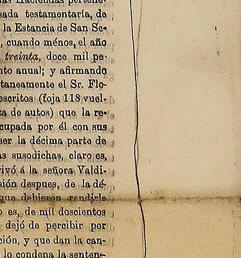 las Haciendas pertene-
sada testamentaría, de
la Estancia de San Se-
, cuando ménos, el año
treinta, doce mil pe-
nto anual; y afirmando
taneamente el Sr. Flo-
escritos (foja 118 vuel-
za de autos) que la re-
cupada por él con sus
ser la décima parte de
as susodichas, claro es,
rivó á la señora Valdi-
sión despues, de la dé-
que debieron rendirle
o es, de mil doscientos
dejó de percibir por
ción, y que dan la can-
lo condena la senten-